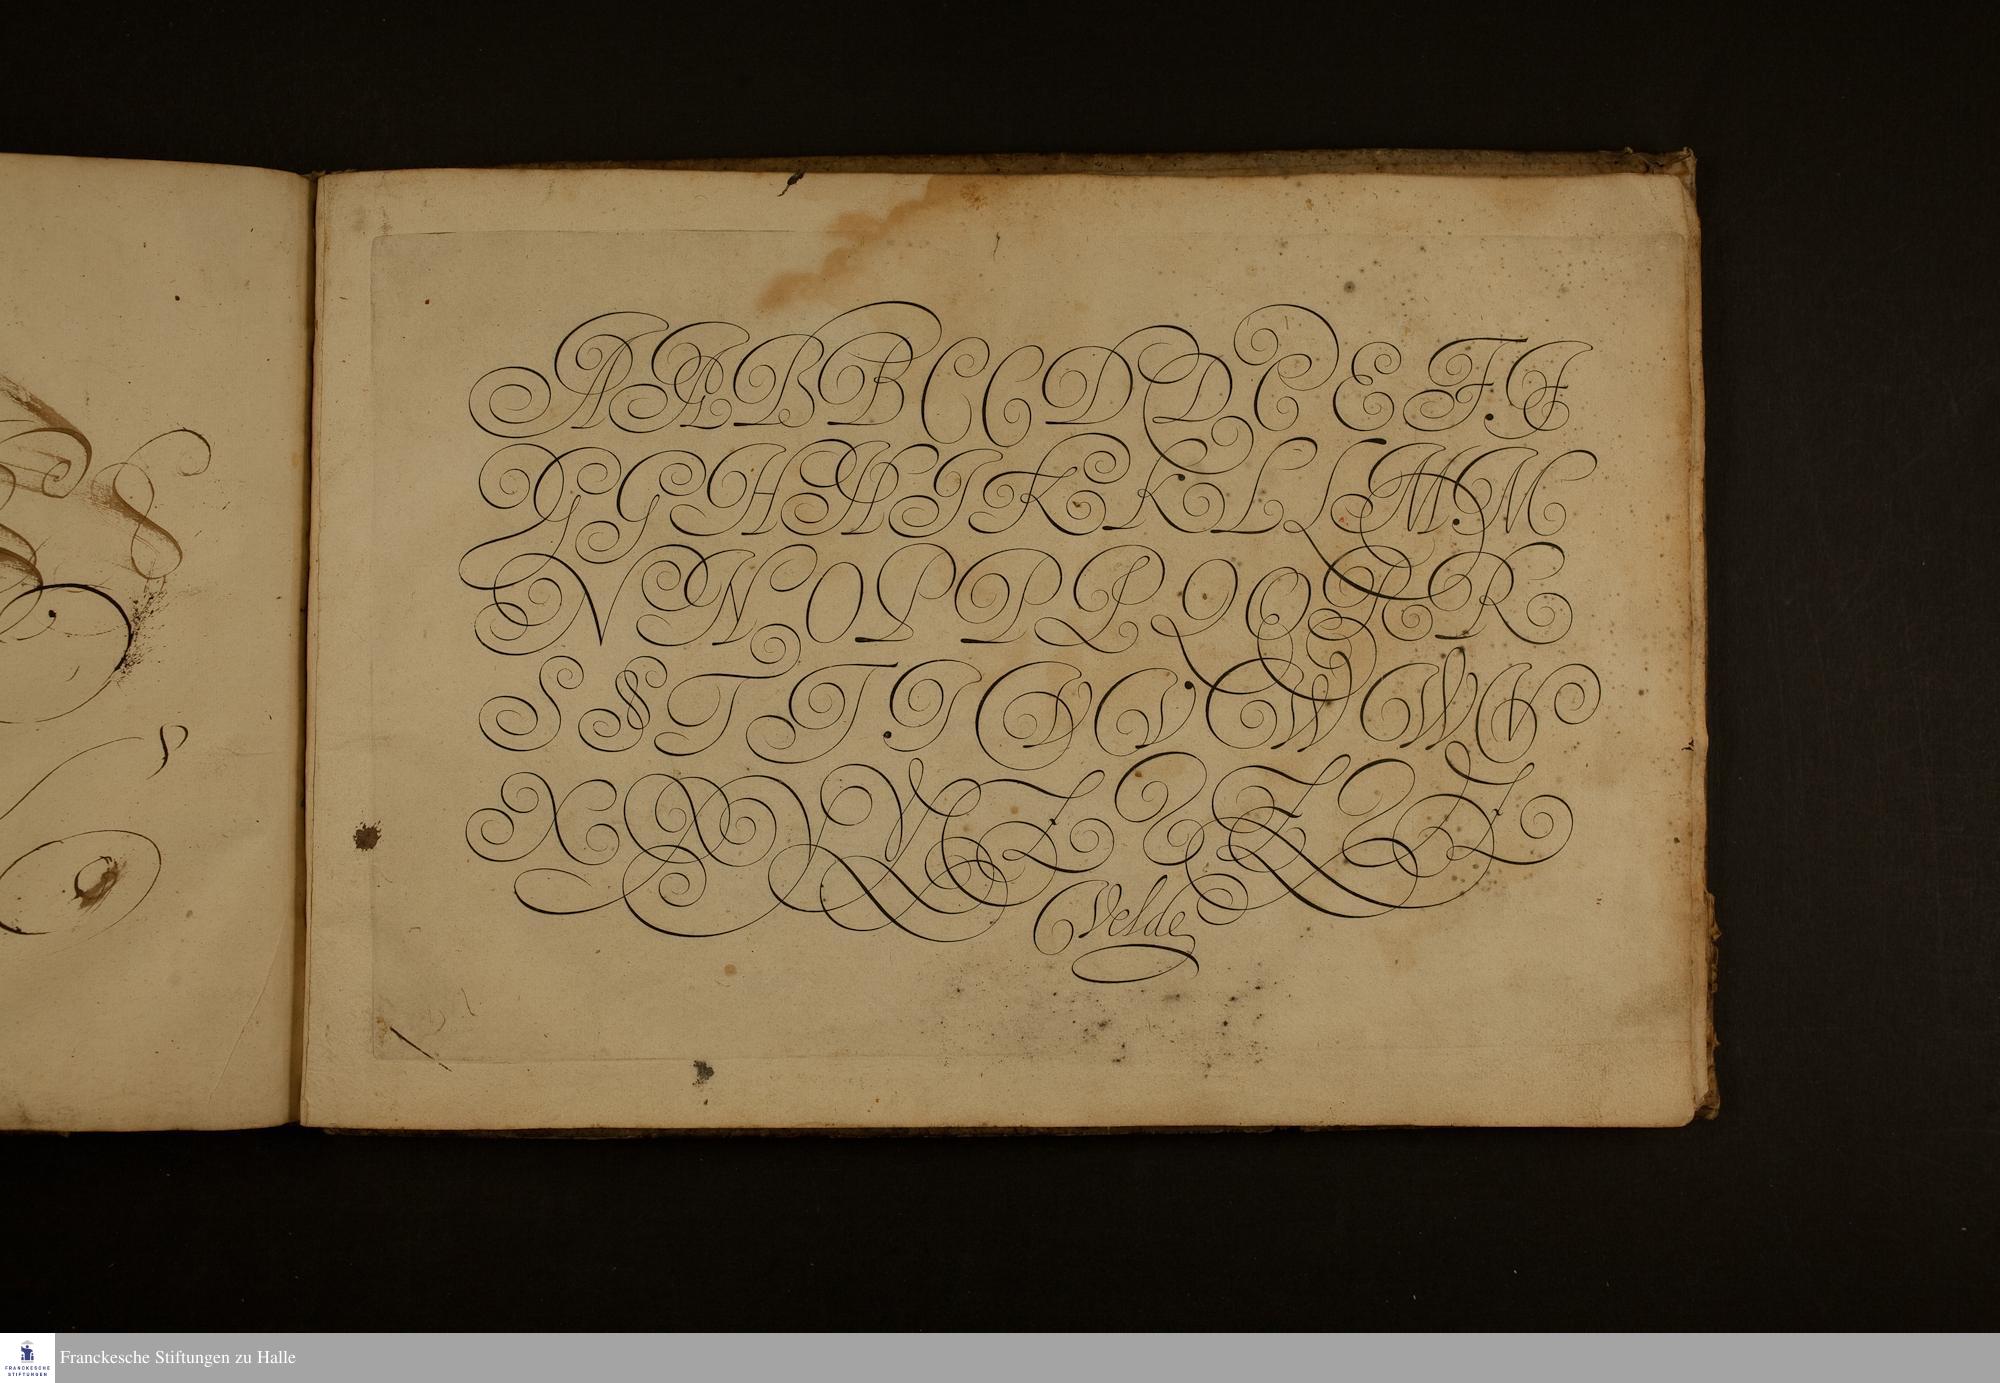 A A B B C C D D E E F. F
G G H H I K K L L M. M
N N O P P P Q Q R R
S S T T. T V V W W V
X X Y Y Z Z Z Z Z
Velde
Franckesche Stiftungen zu Halle
FRANCKESCHE
STIFTUNGEN